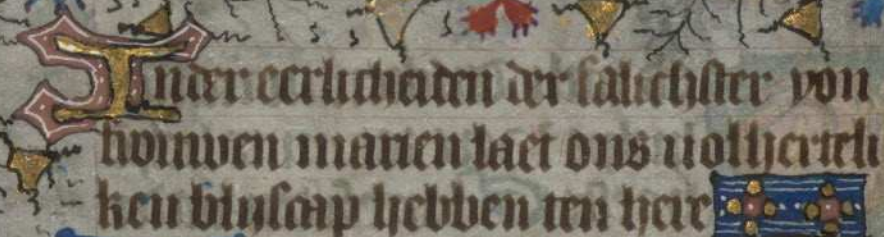 Inder eerlicheiden der salichster yon
kvruwen marien laet ons volherteli
ken blyscap hebben ten here